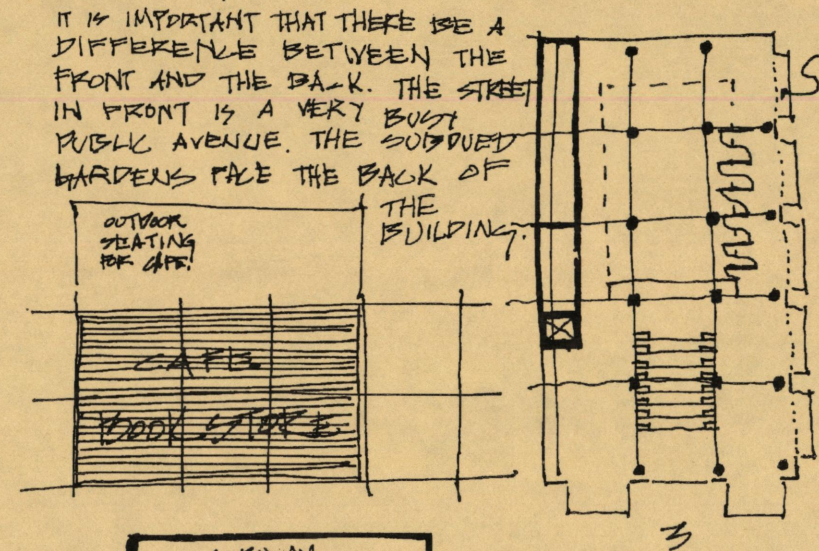 IT IS IMPORTANT THAT THERE BE A
DIFFERENCE BETWEEN THE
FRONT AND THE BACK. THE STREET
IN FRONT IS A VERY BUSY
PUBLIC AVENUE. THE SUBDUED
GARDENS FACE THE BACK OF
THE
BUILDING.
OUTDOOR
SEATING
FOR CAFE!
CAFE
BOOK STORE
3